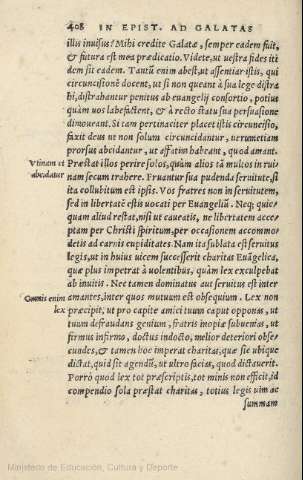 408 IN EPIST. AD GALATAS
illis inuisus? Mihi credite Galatæ, semper eadem fuit,
& futura est mea prædicatio. Videte, ut uestra fides itē
dem sit eadem. Tantū enim abest, ut assentiar istis, qui
circuncisionē docent, ut si non queant à sua lege distra
hi, distrahantur penitus ab euangelij consortio, potius
quàm uos labefactent, & à recto statu sua persuasione
dimoueant. Si tam pertinaciter placet istis circuncisio,
faxit deus ut non solum circuncidantur, uerumetiam
prorsus abcidantur, ut affatim habeant, quod amant.
Vtinam et Præstat illos perire solos, quàm alios tā multos in rui-
abcidātur nam secum trahere. Fruantur sua pudenda seruitute, si
ita collubitum est ipsis. Vos fratres non in seruitutem,
sed in libertatē estis uocati per Euangeliū. Neq; quic-
quam aliud restat, nisi ut caueatis, ne libertatem acce-
ptam per Christi spiritum, per occasionem accommo-
detis ad carnis cupiditates. Nam ita sublata est seruitus
legis, ut in huius uicem successerit charitas Euāgelica,
quæ plus impetrat à uolentibus, quàm lex exculpebat
ab inuitis. Nec tamen dominatus aut seruitus est inter
Omnis enim amantes, inter quos mutuum est obsequium. Lex non
lex præcipit, ut pro capite amici tuum caput opponas, ut
tuum defraudans genium, fratris inopiæ subuenias, ut
firmus infirmo, doctus indocto, melior deteriori obse
cundes, & tamen hoc imperat charitas, quæ sic ubique
dictat, quid sit agendū, ut ultro facias, quod dictauerit.
Porrò quod lex tot præscriptis, tot minis non efficit, id
compendio sola præstat charitas, totius legis uim ac
summam
Ministerio de Educación, Cultura y Deporte